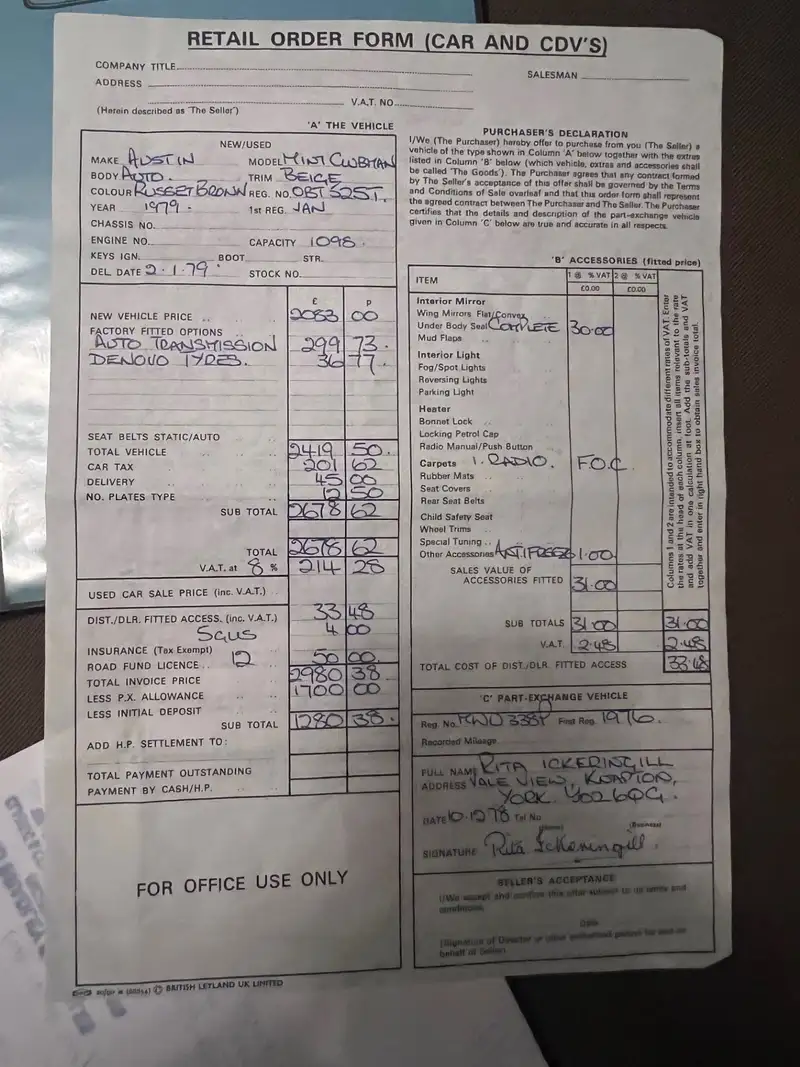 RETAIL ORDER FORM (CAR AND CDV'S)
COMPANY TITLE
SALESMAN
ADDRESS
V.A.T. NO.
(Herein described as 'The Seller')
'A' THE VEHICLE
NEW/USED
MAKE AUSTIN MODEL MINI CLUBMAN
BODY AUTO. TRIM BEIGE
COLOUR RUSSET BROWN REG. NO. OBT 525T.
YEAR 1979. 1st REG. JAN
CHASSIS NO.
ENGINE NO. CAPACITY 1098.
KEYS IGN. BOOT STR.
DEL. DATE 2.1.79. STOCK NO.
£ p
NEW VEHICLE PRICE 2083 00
FACTORY FITTED OPTIONS
AUTO TRANSMISSION 299 73
DENOVO TYRES. 36 77
SEAT BELTS STATIC/AUTO
TOTAL VEHICLE 2419 50
CAR TAX 201 62
DELIVERY 45 00
NO. PLATES TYPE 12 50
SUB TOTAL 2678 62
TOTAL 2678 62
V.A.T. at 8 % 214 28
USED CAR SALE PRICE (inc. V.A.T.)
DIST./DLR. FITTED ACCESS. (inc. V.A.T.) 33 48
4 00
INSURANCE (Tax Exempt)
ROAD FUND LICENCE 12 50 00
TOTAL INVOICE PRICE 2980 38
LESS P.X. ALLOWANCE 1700 00
LESS INITIAL DEPOSIT
SUB TOTAL 1280 38.
ADD H.P. SETTLEMENT TO:
TOTAL PAYMENT OUTSTANDING
PAYMENT BY CASH/H.P.
FOR OFFICE USE ONLY
© BRITISH LEYLAND UK LIMITED
PURCHASER'S DECLARATION
I/We (The Purchaser) hereby offer to purchase from you (The Seller) a
vehicle of the type shown in Column 'A' below together with the extras
listed in Column 'B' below (which vehicle, extras and accessories shall
be called 'The Goods'). The Purchaser agrees that any contract formed
by The Seller's acceptance of this offer shall be governed by the Terms
and Conditions of Sale overleaf and that this order form shall represent
the agreed contract between The Purchaser and The Seller. The Purchaser
certifies that the details and description of the part-exchange vehicle
given in Column 'C' below are true and accurate in all respects.
'B' ACCESSORIES (fitted price)
ITEM 1 @ % VAT 2 @ % VAT
£0.00 £0.00
Interior Mirror
Wing Mirrors Flat/Convex
Under Body Seal COMPLETE 30.00
Mud Flaps
Interior Light
Fog/Spot Lights
Reversing Lights
Parking Light
Heater
Bonnet Lock
Locking Petrol Cap
Radio Manual/Push Button
Carpets 1. RADIO. F.O.C
Rubber Mats
Seat Covers
Rear Seat Belts
Child Safety Seat
Wheel Trims
Special Tuning
Other Accessories ANTIFREEZE 1.00
SALES VALUE OF
ACCESSORIES FITTED 31.00
SUB TOTALS 31.00 31.00
V.A.T. 2.48 2.48
TOTAL COST OF DIST./DLR. FITTED ACCESS 33.48
Columns 1 and 2 are intended to accommodate different rates of VAT. Enter
the rates at the head of each column, insert all items relevant to the rate
and add VAT in one calculation at foot. Add the sub-totals and VAT
together and enter in right hand box to obtain sales invoice total.
'C' PART-EXCHANGE VEHICLE
Reg. No. First Reg. 1976.
Recorded Mileage
FULL NAME RITA ICKERINGILL
ADDRESS VALE VIEW, KNAPTON,
YORK. YO2 6QG.
DATE 10.12.78 Tel No
(Home) (Business)
SIGNATURE Rita Ickeringill.
SELLER'S ACCEPTANCE
I/We accept and confirm this offer subject to its terms and
conditions.
Date
(Signature of Director or other authorised person for and on
behalf of Seller)